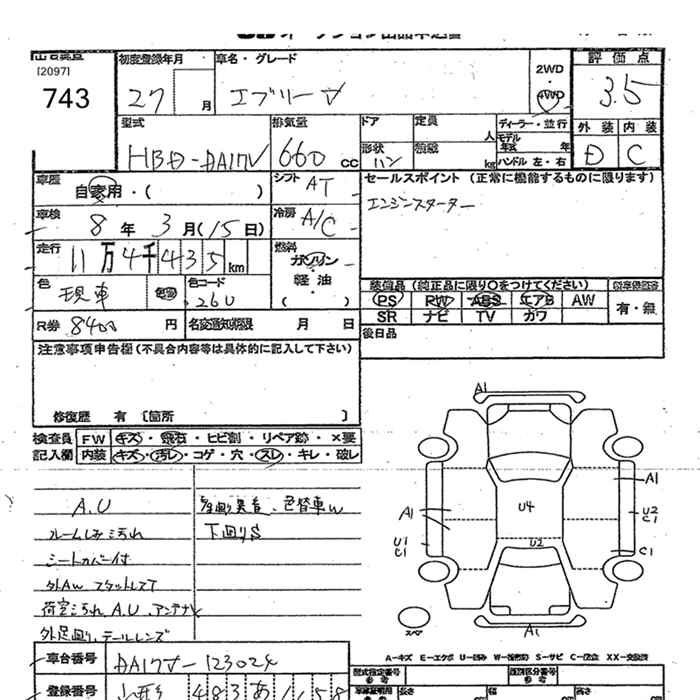 [2097]
743
初度登録年月
27 月
車名・グレード
エブリー
2WD
・
4WD
評価点
3.5
外装 内装
D C
型式
HBD-DA17V
排気量
660 cc
ドア
形状
バン
定員
人
積載
kg
ディーラー・並行
モデル
年式 年
ハンドル 左・右
車歴
自家用・( )
シフト
AT
セールスポイント (正常に機能するものに限ります)
エンジンスターター
車検
8 年 3 月(15日)
冷房
A/C
走行
11万4千435km
燃料
ガソリン
・
軽油
・
( )
色
現車
色替
色コード
26U
装備品 (純正品に限り〇をつけてください)
PS PW ABS エアB AW
SR ナビ TV カワ
有・無
R券 8400 円
名変通知期限 月 日
後日品
注意事項申告欄(不具合内容等は具体的に記入して下さい)
修復歴 有 〔箇所 〕
検査員
記入欄
FW キズ・飛石・ヒビ割・リペア跡・×要
内装 キズ・汚レ・コゲ・穴・スレ・キレ・破レ
A.U
ルームしみ汚れ
シートカバー付
外AW スタットレスT
荷室汚れ、A.U、アンテナ
外足廻り、テールレンズ
色替車W
下廻りS
A1
A1
A1
U4
U2
C1
U1
C1
U2
C1
A1
スペア
A-キズ E-エクボ U-凹み W-(波形状) S-サビ C-腐食 XX-交換済
車台番号
DA17V-123024
登録番号
山形 483 あ 1158
型式指定番号
類別区分番号
長さ
幅
高さ